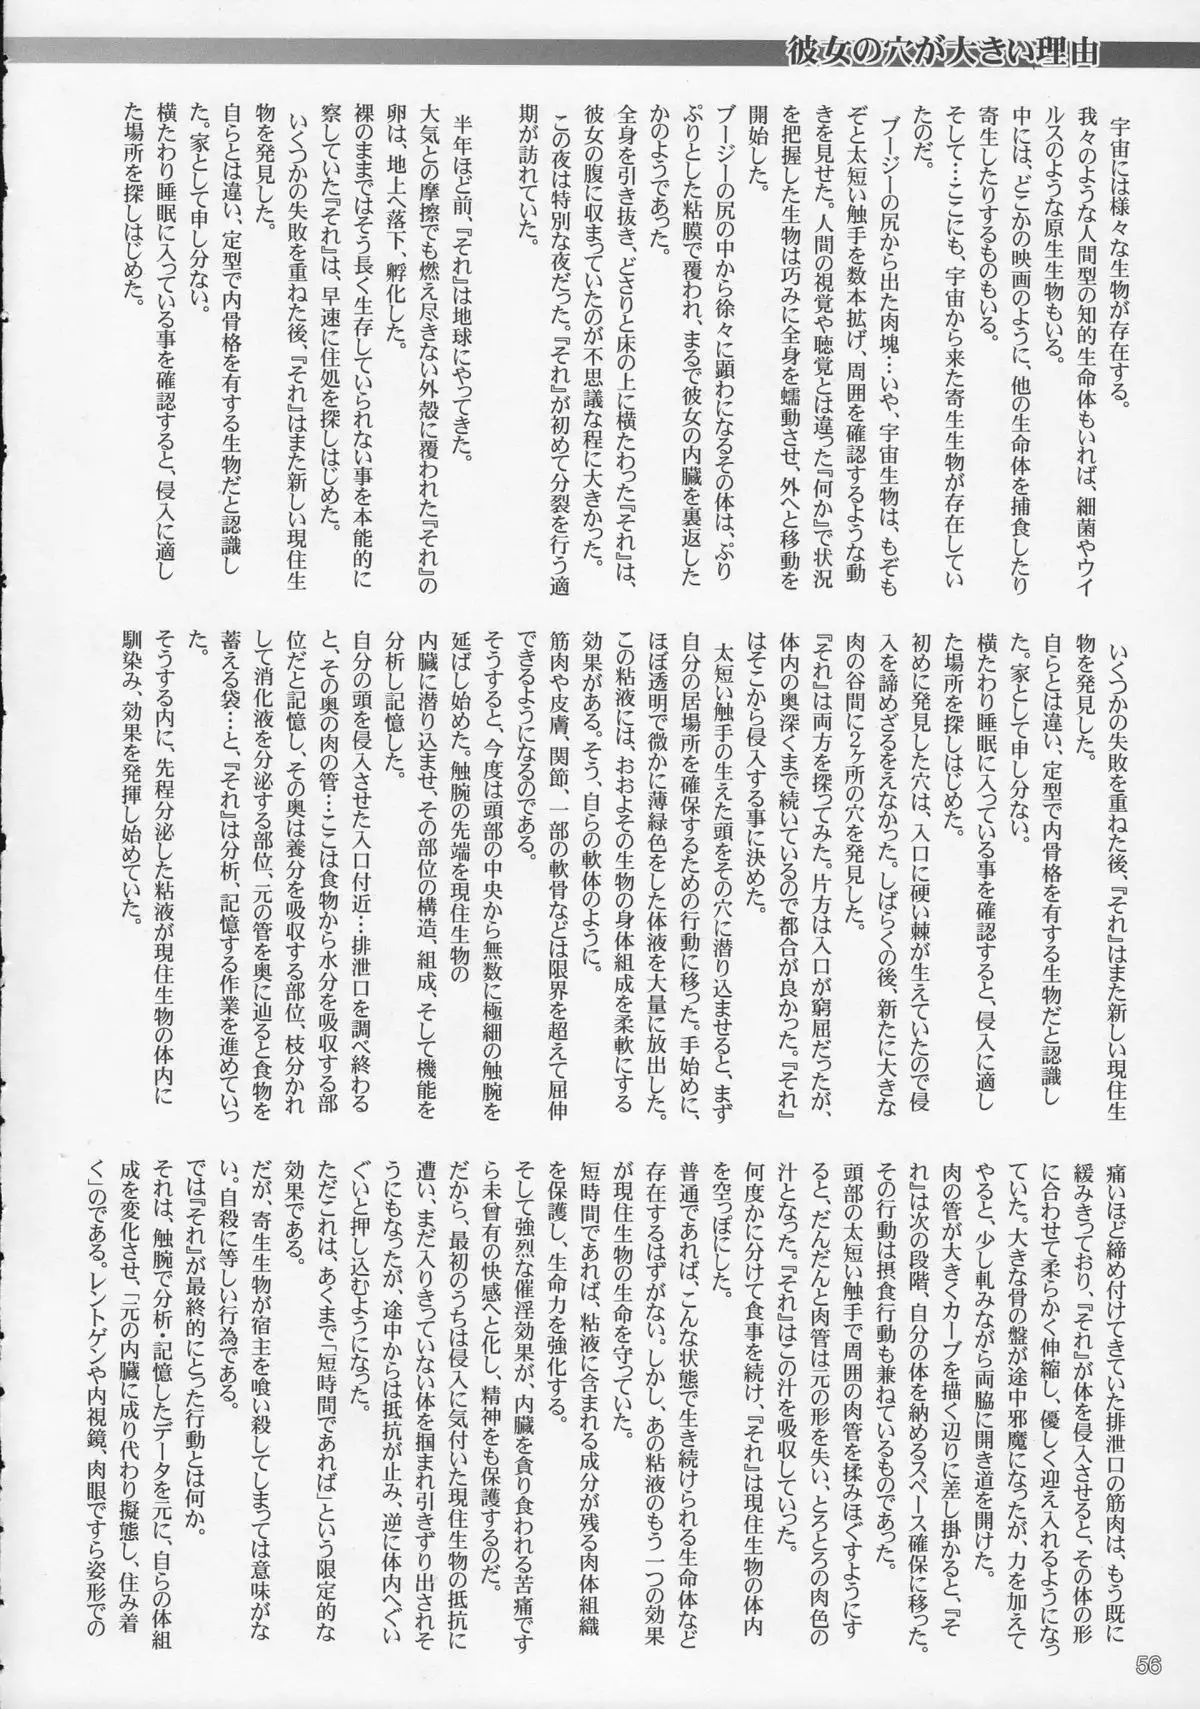 彼女の穴が大きい理由
宇宙には様々な生物が存在する。
我々のような人間型の知的生命体もいれば、細菌やウイ
ルスのような原生生物もいる。
中には、どこかの映画のように、他の生命体を捕食したり
寄生したりするものもいる。
そして…ここにも、宇宙から来た寄生生物が存在してい
たのだ。
ブージーの尻から出た肉塊…いや、宇宙生物は、もぞも
ぞと太短い触手を数本拡げ、周囲を確認するような動
きを見せた。人間の視覚や聴覚とは違った『何か』で状況
を把握した生物は巧みに全身を蠕動させ、外へと移動を
開始した。
ブージーの尻の中から徐々に顕わになるその体は、ぷり
ぷりとした粘膜で覆われ、まるで彼女の内臓を裏返した
かのようであった。
全身を引き抜き、どさりと床の上に横たわった『それ』は、
彼女の腹に収まっていたのが不思議な程に大きかった。
この夜は特別な夜だった。『それ』が初めて分裂を行う適
期が訪れていた。
半年ほど前、『それ』は地球にやってきた。
大気との摩擦でも燃え尽きない外殻に覆われた『それ』の
卵は、地上へ落下、孵化した。
裸のままではそう長く生存していられない事を本能的に
察していた『それ』は、早速に住処を探しはじめた。
いくつかの失敗を重ねた後、『それ』はまた新しい現住生
物を発見した。
自らとは違い、定型で内骨格を有する生物だと認識し
た。家として申し分ない。
横たわり睡眠に入っている事を確認すると、侵入に適し
た場所を探しはじめた。
いくつかの失敗を重ねた後、『それ』はまた新しい現住生
物を発見した。
自らとは違い、定型で内骨格を有する生物だと認識し
た。家として申し分ない。
横たわり睡眠に入っている事を確認すると、侵入に適し
た場所を探しはじめた。
初めに発見した穴は、入口に硬い棘が生えていたので侵
入を諦めざるをえなかった。しばらくの後、新たに大きな
肉の谷間に2ヶ所の穴を発見した。
『それ』は両方を探ってみた。片方は入口が窮屈だったが、
体内の奥深くまで続いているので都合が良かった。『それ』
はそこから侵入する事に決めた。
太短い触手の生えた頭をその穴に潜り込ませると、まず
自分の居場所を確保するための行動に移った。手始めに、
ほぼ透明で微かに薄緑色をした体液を大量に放出した。
この粘液には、おおよその生物の身体組成を柔軟にする
効果がある。そう、自らの軟体のように。
筋肉や皮膚、関節、一部の軟骨などは限界を超えて屈伸
できるようになるのである。
そうすると、今度は頭部の中央から無数に極細の触腕を
延ばし始めた。触腕の先端を現住生物の
内臓に潜り込ませ、その部位の構造、組成、そして機能を
分析し記憶した。
自分の頭を侵入させた入口付近…排泄口を調べ終わる
と、その奥の肉の管…ここは食物から水分を吸収する部
位だと記憶し、その奥は養分を吸収する部位、枝分かれ
して消化液を分泌する部位、元の管を奥に辿ると食物を
蓄える袋…と、『それ』は分析、記憶する作業を進めていっ
た。
そうする内に、先程分泌した粘液が現住生物の体内に
馴染み、効果を発揮し始めていた。
痛いほど締め付けてきていた排泄口の筋肉は、もう既に
緩みきっており、『それ』が体を侵入させると、その体の形
に合わせて柔らかく伸縮し、優しく迎え入れるようになっ
ていた。大きな骨の盤が途中邪魔になったが、力を加えて
やると、少し軋みながら両脇に開き道を開けた。
肉の管が大きくカーブを描く辺りに差し掛かると、『そ
れ』は次の段階、自分の体を納めるスペース確保に移った。
その行動は摂食行動も兼ねているものであった。
頭部の太短い触手で周囲の肉管を揉みほぐすようにす
ると、だんだんと肉管は元の形を失い、とろとろの肉色の
汁となった。『それ』はこの汁を吸収していった。
何度かに分けて食事を続け、『それ』は現住生物の体内
を空っぽにした。
普通であれば、こんな状態で生き続けられる生命体など
存在するはずがない。しかし、あの粘液のもう一つの効果
が現住生物の生命を守っていた。
短時間であれば、粘液に含まれる成分が残る肉体組織
を保護し、生命力を強化する。
そして強烈な催淫効果が、内臓を貪り食われる苦痛です
ら未曾有の快感へと化し、精神をも保護するのだ。
だから、最初のうちは侵入に気付いた現住生物の抵抗に
遭い、まだ入りきっていない体を掴まれ引きずり出されそ
うにもなったが、途中からは抵抗が止み、逆に体内へぐい
ぐいと押し込むようになった。
ただこれは、あくまで「短時間であれば」という限定的な
効果である。
だが、寄生生物が宿主を喰い殺してしまっては意味がな
い。自殺に等しい行為である。
では『それ』が最終的にとった行動とは何か。
それは、触腕で分析・記憶したデータを元に、自らの体組
成を変化させ、「元の内臓に成り代わり擬態し、住み着
く」のである。レントゲンや内視鏡、肉眼ですら姿形での
56